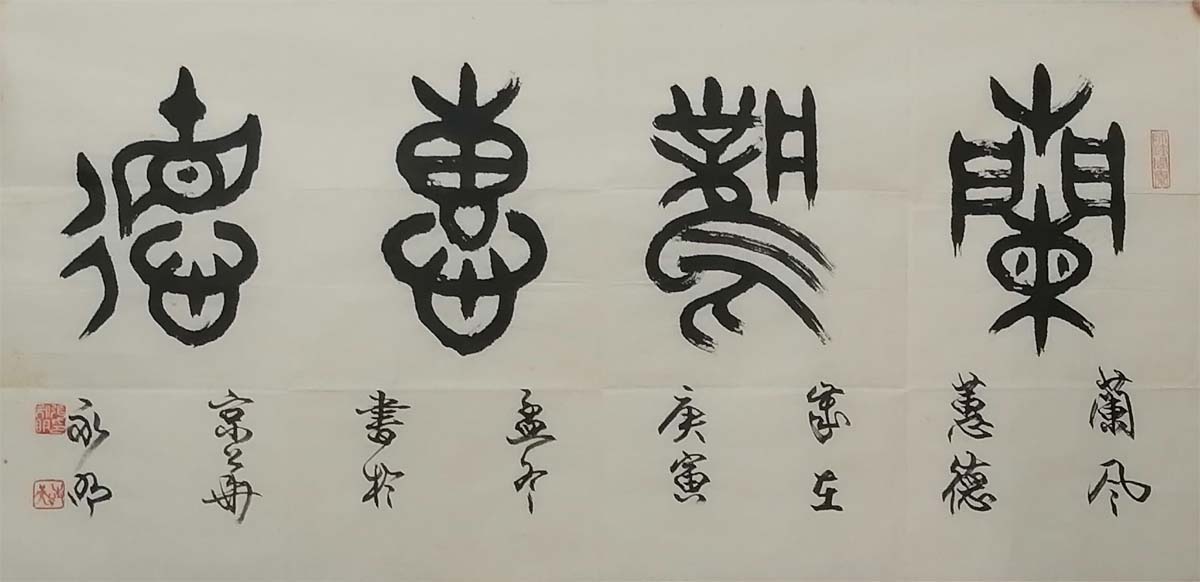 蘭風蕙德
蘭风
蕙德
歲在
庚寅
孟冬
書於
京華
永明